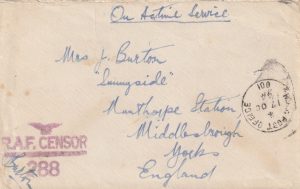 On Active Service
Mrs J. Burton
"Sunnyside"
Nunthorpe Station
Middlesbrough
Yorks
England
POST OFFICE
17 OC
801
R.A.F. CENSOR
288
Burton